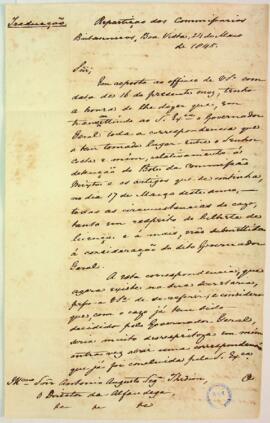 Traducção
Repartição dos Commissarios
Britannicos, Boa Vista, 24 de Maio
de 1845.
Snr,
Em resposta ao officio de VS.ª com
data de 16 do presente mez, tenho
a honra de lhe dizer que, em
transmittindo ao S. Ex.ª o Governador
Geral toda a correspondencia que
a tem tomado lugar entre o Senhor
e mim, relativamente á
detenção do Bote da Commissão
Mixta e os artigos que elle continha,
no dia 17 de Março deste anno,
todas as circumstancias do caso,
tanto em respeito de bilhete de
licença e á mais, vão submettidas
á consideração do dito Governador
Geral.
A esta correspondencia, que
agora existe na sua Secretaria,
peço a VS.ª de se referir; e considero
que, como o cazo já tem sido
decidido pelo Governador Geral,
seria muito desrespeitoso em mim
outra vez abrir uma correspondencia
que já foi concluida pelo S. Ex.ª
Ill.mo Snr. Antonio Augusto
O Director da Alfandega,
&a &a &a